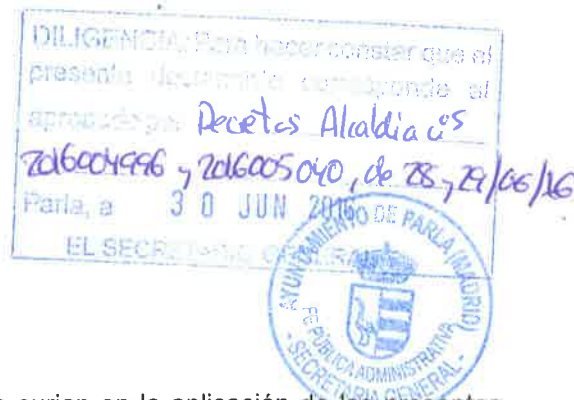 DILIGENCIA: Para hacer constar que el
presente documento corresponde al
aprobado por Decretos Alcaldia nos
2016004996 y 2016005040, de 28 y 29/06/16
Parla, a 30 JUN 2016
EL SECRETARIO GENERAL
AYUNTAMIENTO DE PARLA (MADRID)
FE PÚBLICA ADMINISTRATIVA
- SECRETARIA GENERAL -
surjan en la aplicación de las presentes